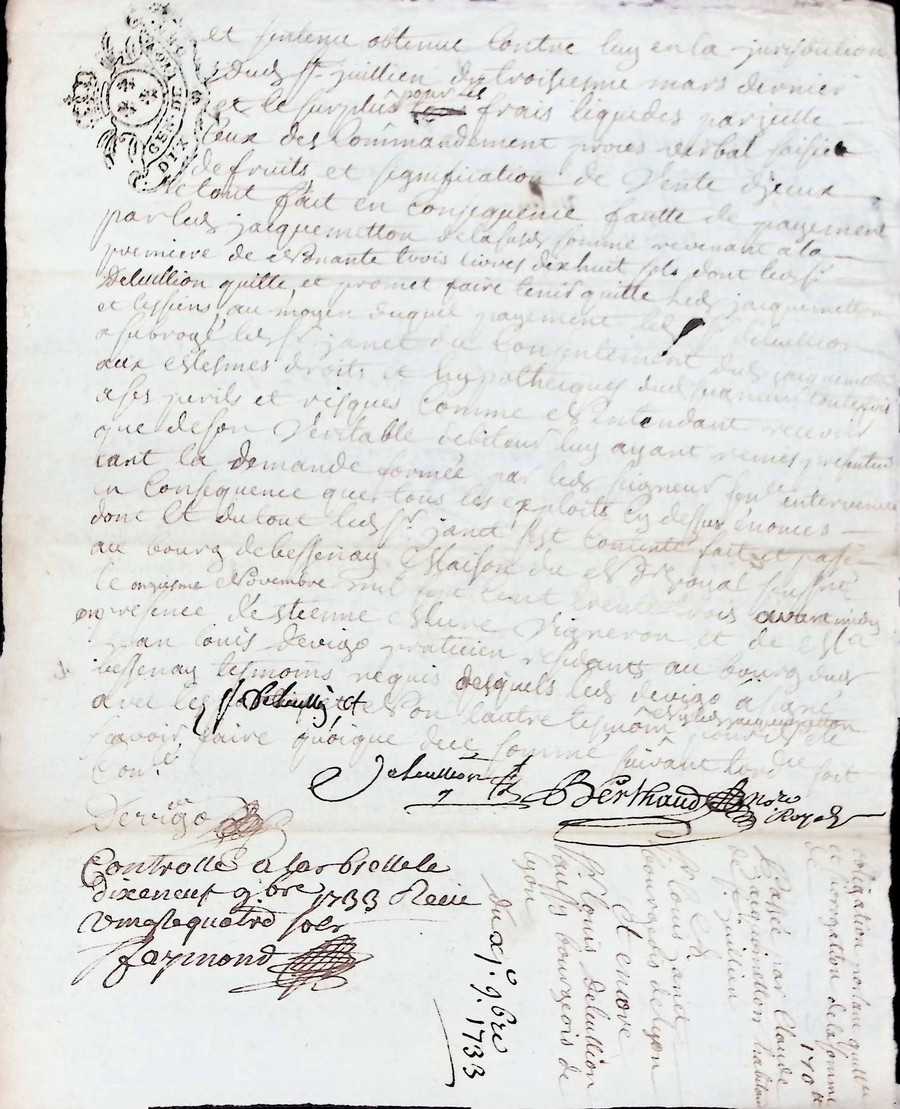 et sentence obtenue contre luy en la jurisdiction
dud St juillien du troisieme mars dernier
et le surplus pour les frais liquidés par icelle
ceux des Commandement proces verbal saisie
de fruits et signification de Vente d'jceux
le tout fait en consequence fautte de payement
par led jacquemetton de lasusd somme revenant a la
premiere de Nonante trois livres dix huit sols dont led Sr
Delullion quitte et promet faire tenir quitte led jacquemetton
et les siens, au moyen duquel payement led Sr Delullion
a subrogé led Sr janet du Consentement dud jacquemetton
aux Mesmes droits et hypotheques dud seigneur toutefois
a ses perils et risques comme N'entendant recevoir
que de son Veritable debiteur luy ayant remis
tant la demande formée par led seigneur
en Consequence que tous les exploits cy dessus énoncés
dont et du tout led Sr janet est Contenté fait et passé
au bourg de bessenay Maison du Nore Royal soussigné
le onzieme Novembre mil sept cent trente trois avant midy
en presence d'estienne Vigneron et de
jean louis devigo praticien residants au bourg dud
bessenay tesmoins requis desquels led devigo a signé
avec led Sr Delullion et Non l'autre tesmoin ny led jacquemetton
scavoir faire quoique de ce sommé suivant lord
Con.
Delullion
Berthaud Nore Royal
Devigo
Controllé a larbrelle le
dixneuf 9bre 1733 Recu
vingtquatre sols
Raymond
obligation portant quittance
et subrogation de la somme
de 170 tt
Passée par Claude
jacquemetton habitant
de St juillien
Sr Louis janet
bourgeois de Lyon
Et encore
Sr Louis Delullion
aussy bourgeois de
Lyon
du xj. 9bre 1733